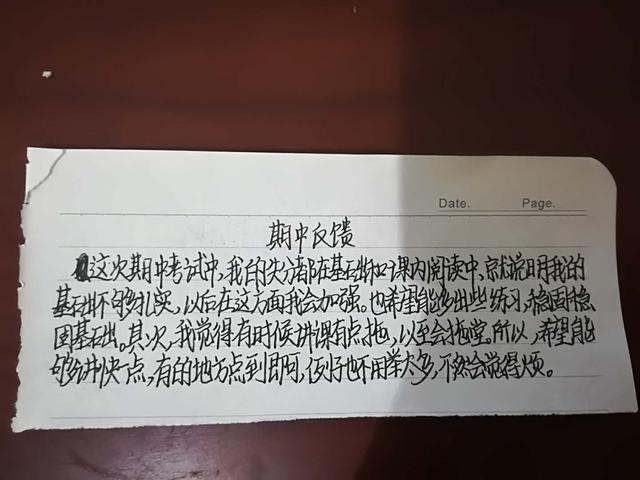 Date. Page.
期中反馈
这次期中考试中,我的失分都在基础和课内阅读中,就说明我的
基础不够扎实,以后在这方面我会加强。也希望能多出些练习,稳固稳
固基础。其次,我觉得有时候讲课有点拖,以至会拖堂。所以,希望能
够讲快一点,有的地方点到即可,例子也不用举太多,不然会觉得烦。